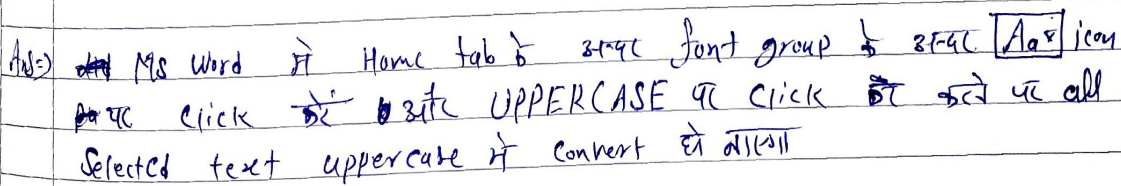 Ans=) Ms Word में Home tab के अन्दर font group के अन्दर Aa˅ icon
पर click करें और UPPERCASE पर click करने पर all
Selected text uppercase में convert हो जाएगा